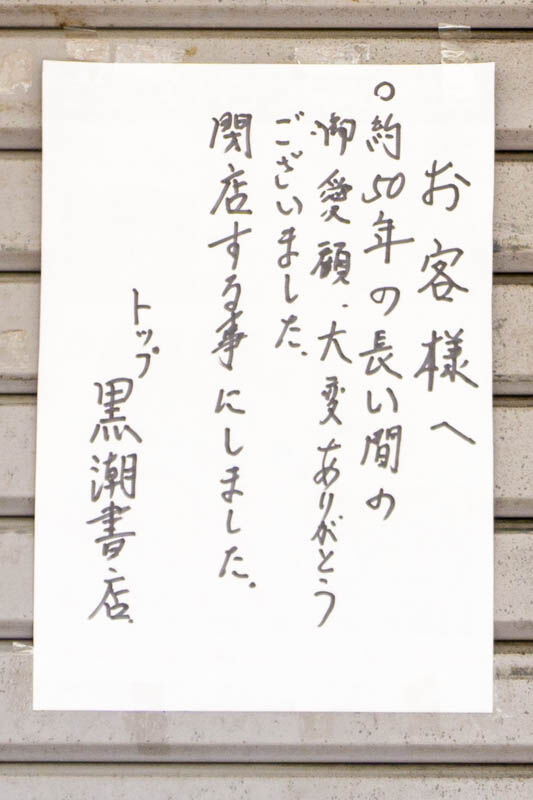 お客様へ
○約50年の長い間の
御愛顧.大変ありがとう
ございました.
閉店する事にしました.
トップ
黒潮書店.